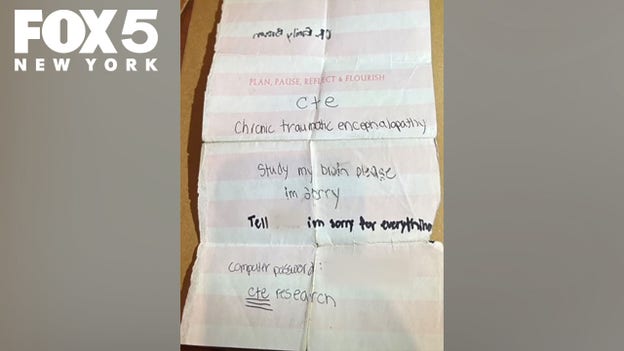 FOX 5
NEW YORK
PLAN, PAUSE, REFLECT & FLOURISH
cte
Chronic traumatic encephalopathy
Study my brain please
im sorry
Tell im sorry for everything
computer password:
cte research